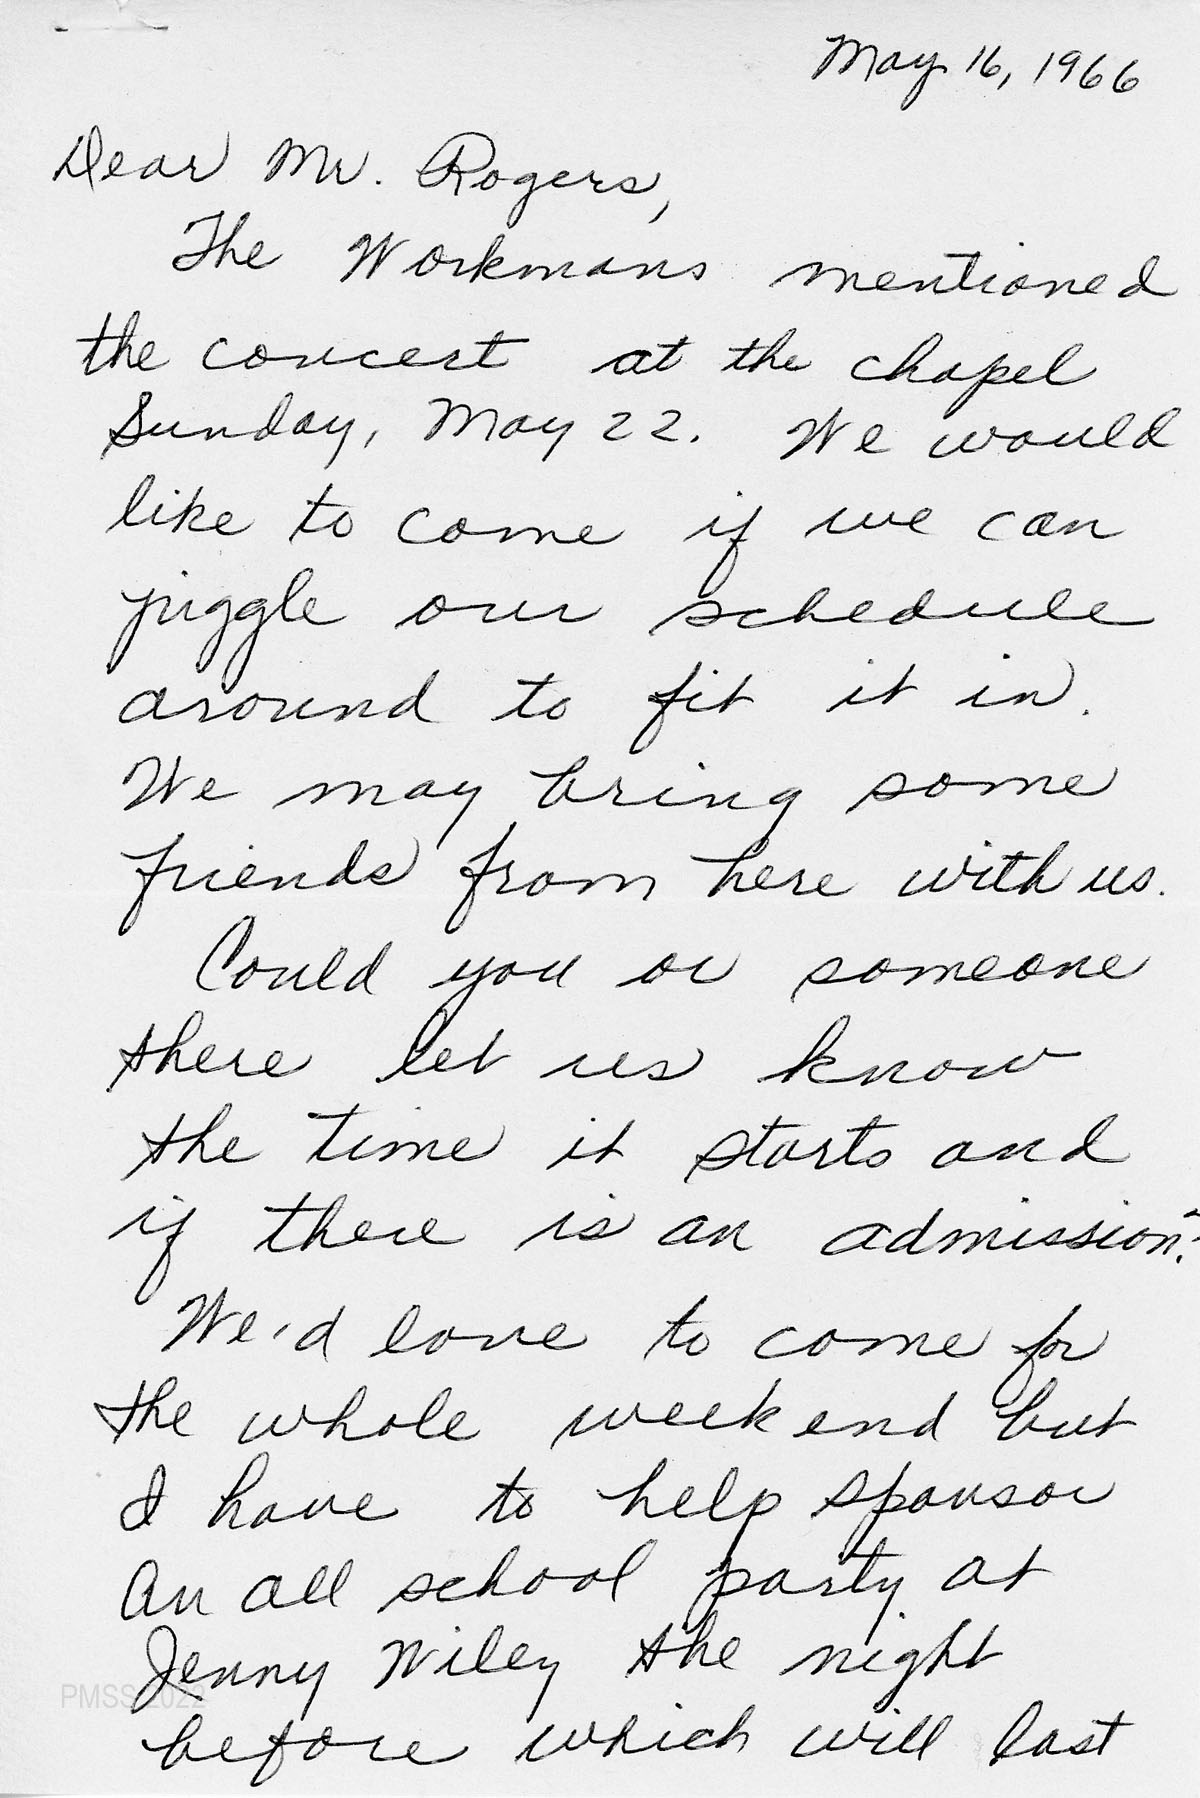 May 16, 1966
Dear Mr. Rogers,
The Workmans mentioned
the concert at the chapel
Sunday, May 22. We would
like to come if we can
jiggle our schedule
around to fit it in.
We may bring some
friends from here with us.
Could you or someone
there let us know
the time it starts and
if there is an admission?
We'd love to come for
the whole weekend but
I have to help sponsor
An all school party at
Jenny Wiley the night
PMSS 2022
before which will last